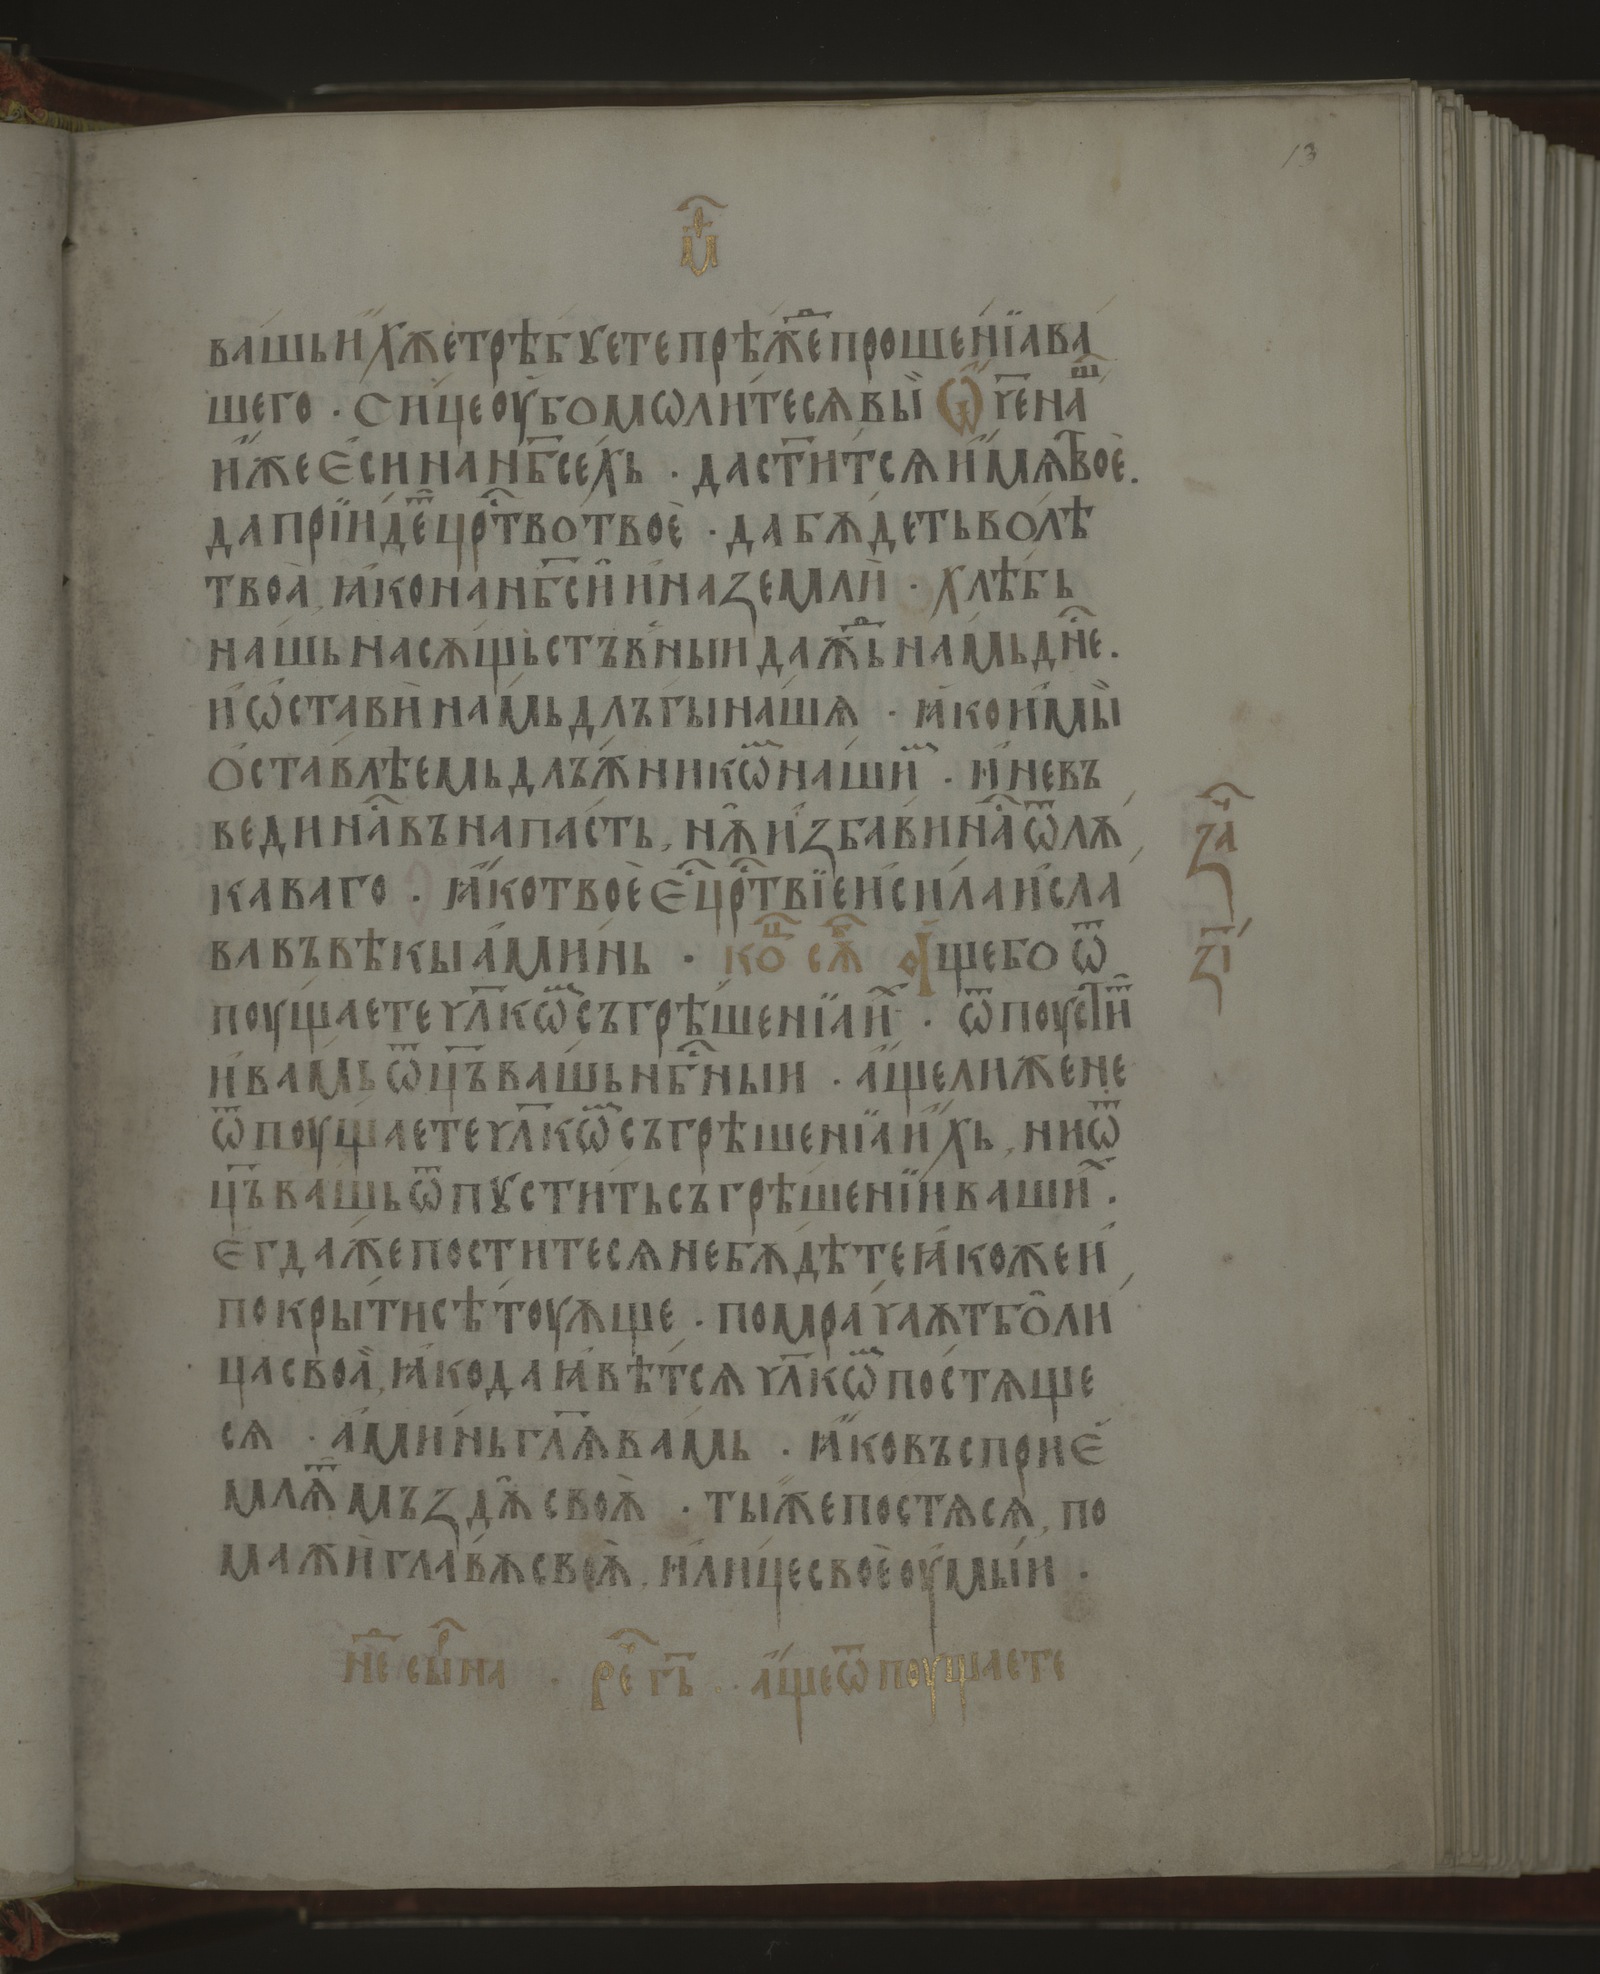 13
вашь и́хже трѣбꙋете прѣⷤде проше́нїа ва
шего · Си́це оу҆бо мѡли́тесѧ вы̀ Ѿч҃е наⷲ
и҆́же Є҆сѝ на нб҃сехь · да ст҃и́тсѧ и҆́мѧ твоѐ.
да прїи́деⷮ црⷭ҇тво твоѐ · да бѫдеть во́лѣ
твоа̀, ꙗ҆́ко на нб҃си̑ и҆ на ꙁемлѝ · хлѣ́бь
на́шь насѫщьстъвныи да́ждь на́мь днⷭ҇е.
и҆ ѡ҆ста́вѝ на́мь длъ́гы на́шѧ · ꙗ҆́ко и҆ мы̀
о҆ставлѣемь длъжникѡⷨ на́шиⷨ · и҆ не въ
веди наⷭ҇ въ напа́сть, нѫ̑ и҆ꙁба́ви наⷭ҇ ѿ лѫ
каваго · ꙗ҆́ко твоѐ Єⷭ҇ црⷭ҇твїе и҆ си́ла и҆ сла
ва въ вѣкы а҆ми́нь · коⷰ сѫⷠ А҆́ще бо ѿ
поущаете чл҃кѡⷨ съгрѣшенїа иⷯ · ѿпоуститⷮ
и҆ ва́мь ѿц҃ъ ва́шь нбⷭ҇ныи · а҆́ще ли же не
ѿпоущаете чл҃кѡⷨ съгрѣшенїа и҆́хь, ни ѿ
ц҃ъ ва́шь ѿпꙋсти́ть съгрѣшенїи ва́шиⷯ ·
Є҆гда́ же постите сѧ не бѫдѣте ꙗ҆́коже и҆
покрыти сѣтоуѫще · помрачаѫт бо̑ ли
ца своа̀, ꙗ҆́ко да ꙗ҆вѣ́тсѧ чл҃кѡⷨ постѧще
сѧ · а҆ми́нь гл҃ѫ ва́мь · ꙗ҆́ко въспріє҆
млѫⷮ мъꙁдѫ̑ своѫ̀ · ты́же постѧсѧ, по
мажѝ гла́вѫ своѫ̀, и҆ лицѐ своѐ оу҆мы́и ·
неⷣ сы́рⷪ҇на · реⷱ҇ г҃ь · а҆́ще ѿпоущаете
ꙁаⷱ҇
ꙁ҃і